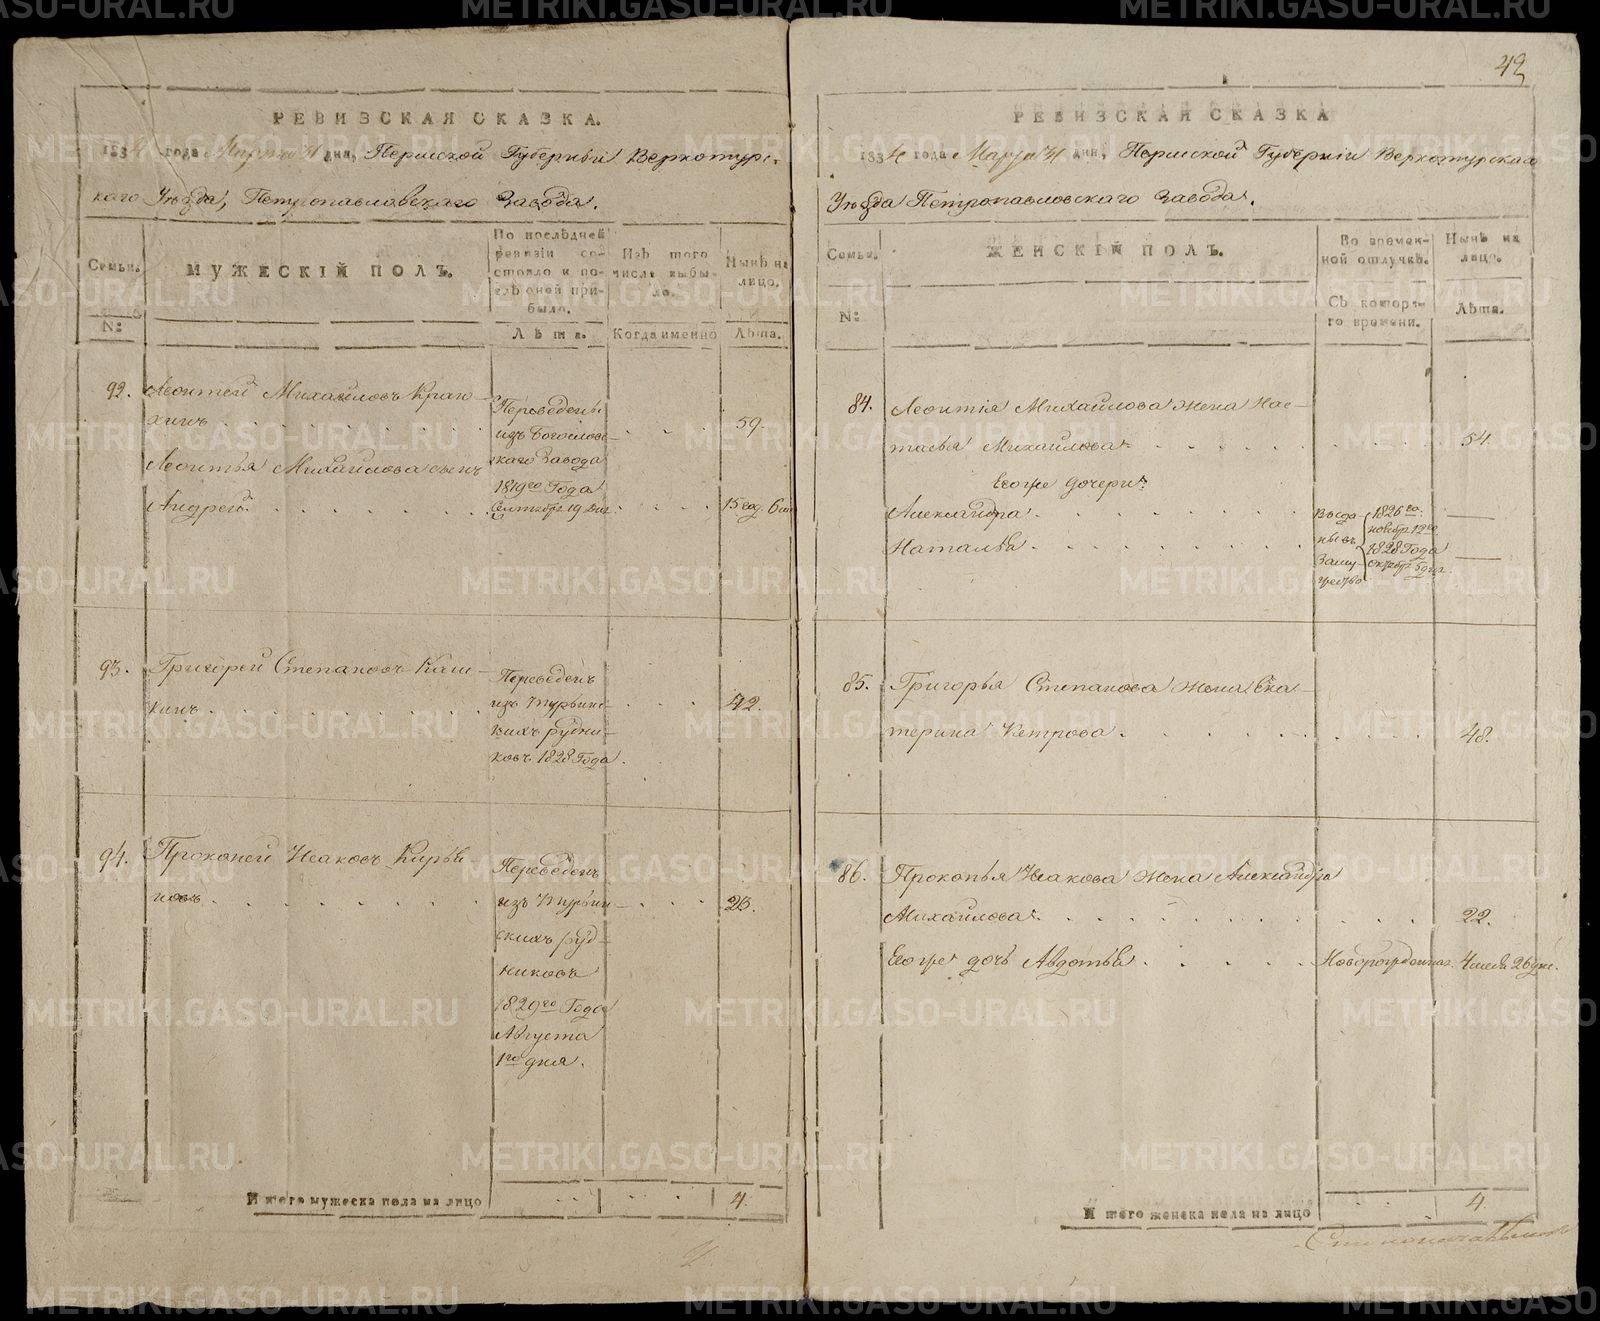 РЕВИЗСКАЯ СКАЗКА.
1834 года Марта 31 дня, Пермской Губернiи Верхотурс-
каго Уѣзда, Петропавловскаго Завода.
Семьи.
№:
МУЖЕСКIЙ ПОЛЪ.
По послѣдней
ревизiи со-
стояло и по-
слѣ оной при-
было.
Лѣта.
Изъ того
числа выбы-
ло.
Когда именно
Нынѣ на
лицо.
Лѣта.
92. Леонтей Михайловъ Краю-
хинъ
59.
Леонтья Михайлова сынъ
Андрей
15 год. 6 м
Переведены
изъ Богословс-
каго Завода
1819го Года
Сентября 19 дня
93. Григорей Степановъ Каш-
кинъ
42.
Переведенъ
изъ Турьинс-
кихъ рудни-
ковъ 1828 Года
94. Прокопей Исаковъ Кирьи
новъ
23.
Переведенъ
изъ Турьин-
скихъ руд-
никовъ
1829го Года
Августа
1го дня.
И того мужеска пола на лицо
4.
42
РЕВИЗСКАЯ СКАЗКА
1834 года Марта 31 дня, Пермской Губернiи Верхотурскаго
Уѣзда Петропавловскаго Завода.
Семьи.
№:
ЖЕНСКIЙ ПОЛЪ.
Во времен-
ной отлучкѣ.
Съ которо-
го времени.
Нынѣ на
лицо.
Лѣта.
84. Леонтiя Михайлова жена Нас-
тасья Михайлова
54.
Его же дочери
Александра
Наталья
Выда-
ны въ
Заму-
жество
1826го
ноября 12го
1828 Года
октября 5 дня
85. Григорья Степанова жена Ека-
терина Петрова
48.
86. Прокопья Исакова жена Александра
Михайлова
22.
Его же дочь Авдотья Новорожденная. 4 месяц 26 дне.
И того женска пола на лицо
4.
METRIKI.GASO-URAL.RU